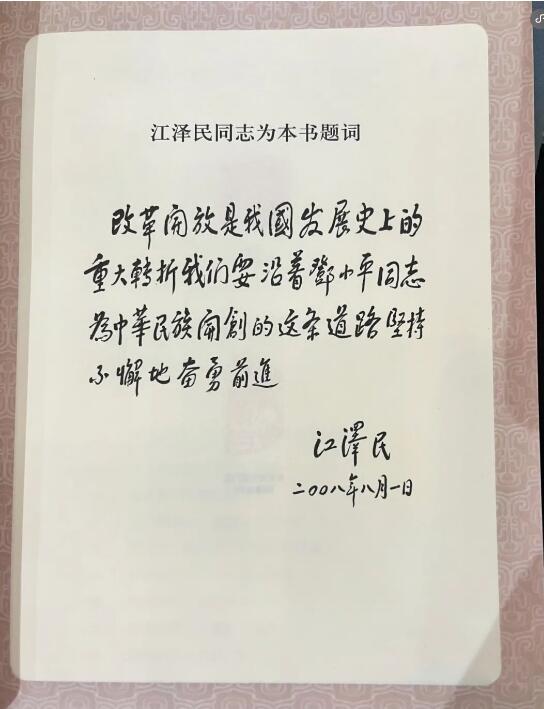 江泽民同志为本书题词
改革開放是我國发展史上的
重大轉折我们要沿着鄧小平同志
為中華民族開創的这条道路堅持
不懈地奋勇前進
江澤民
二〇〇八年八月一日